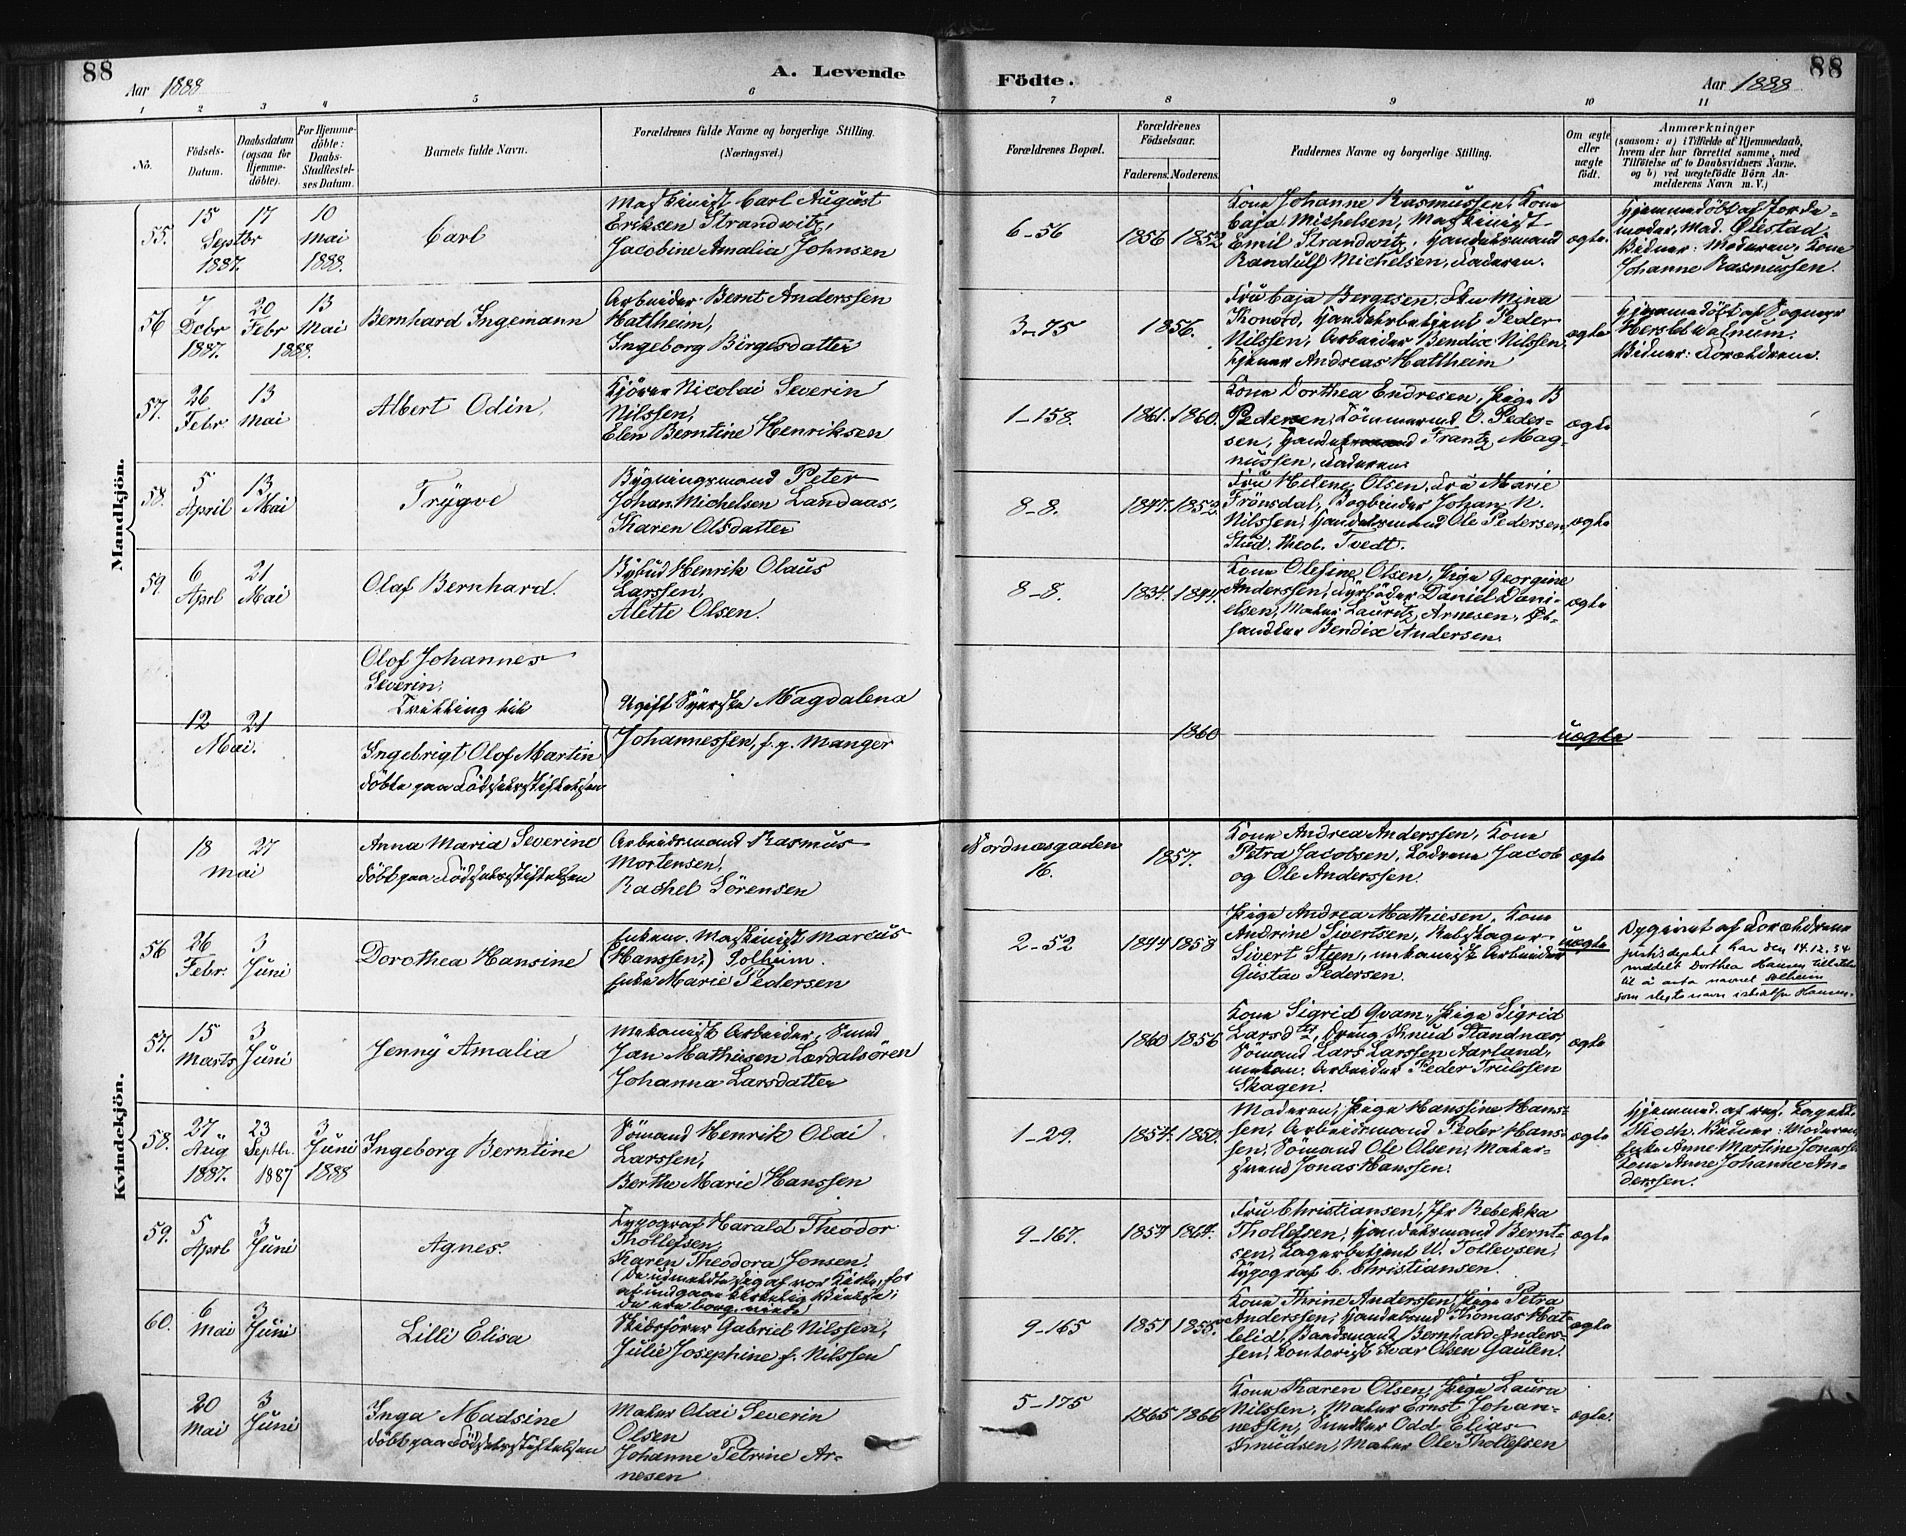 88
Aar 1888
A. Levende
Födte.
Aar 1888
88
1 2 3 4 5 6 7 8 9 10 11
No.
Födsels-
Datum.
Daabsdatum
(ogsaa for
Hjemme-
döbte).
For Hjemme-
döbte:
Daabs-
Stadfæstel-
ses Datum.
Barnets fulde Navn.
Forældrenes fulde Navne og borgerlige Stilling.
(Næringsvei.)
Forældrenes Bopæl.
Forældrenes
Födselsaar.
Faderens. Moderens.
Faddernes Navne og borgerlige Stilling.
Om ægte
eller
uægte
født.
Anmærkninger
(saasom: a) i Tilfælde af Hjemmedaab,
hvem der har forrettet samme, med
Tilföielse af to Daabsvidners Navne,
og b) ved uægtefödte Börn An-
melderens Navn m. V.)
Mandkjön.
55.
15 Septbr 1887.
17
10 Mai 1888.
Carl
Maskinist Carl August
Eriksen Strandwitz,
Jacobine Amalia Johnsen
6-56
1856 1852
Kone Johanne Rasmussen, Kone
Caja Michelsen, Maskinist
Emil Strandwitz, Handelsmand
Randulf Michelsen, Faderen.
ægte.
Hjemmedöbt af Jorde-
moder, Mad. Ølestad,
Vidner: Moderen, Kone
Johanne Rasmussen.
56
7 Decbr 1887.
20 Febr 1888.
13 Mai
Bernhard Ingemann
Arbeider Bernt Anderssen
Hatlheim,
Ingeborg Birgesdatter
3-75
1856.
Fru Caja Bergesen, Mina
Handelsbetjent Peder
Nilssen, Arbeider Bendix Nilssen,
Andreas Hatlheim
ægte
Hjemmedöbt af
Herslebwalnum.
Vidner: Forældrene.
57.
26 Febr.
13 Mai
Albert Odin,
Kjörer Nicolai Severin
Nilssen,
Elen Berntine Henriksen
1-158.
1861. 1860.
Kone Dorthea Endresen, Pige B
Pedersen, Tömmermd O. Peder-
sen, Handelsmand Frantz Mag-
nussen, Faderen.
ægte
58.
5 April
13 Mai
Trygve
Bygningsmand Peter
Johan Michelsen Landaas,
Karen Olsdatter
8-8.
1847. 1852.
Fru Helene Olsen, Fru Marie
Frönsdal, Bogbinder Johan N.
Nilssen, Handelsmand Ole Pedersen,
Stud. theol. Tvedt.
ægte
59
6 Aprl
21 Mai
Olaf Bernhard.
Bybud Henrik Olaus
Larssen,
Alette Olsen.
8-8.
1834. 1844.
Kone Olefine Olsen, Pige Georgine
Anderssen, Fyrböder Daniel Dani-
elsen, Maler Lauritz Arnesen,
handler Bendix Andersen.
ægte
12 Mai.
21
Olof Johannes
Severin,
Tvilling til
Ingebrigt Olof Martin
döbte paa Födselsstiftelsen
Ugift Syerske Magdalena
Johannessen, f. p. Manger
1860
uægte
Kvindekjön.
18 Mai
27
Anna Maria Severine
döbt paa Födselsstiftelsen
Arbeidsmand Rasmus
Mortensen,
Rachel Sörensen
Nordnæsgaden
16.
1857.
Kone Andrea Anderssen, Kone
Petra Jacobsen, Fadrene Jacob
og Ole Anderssen.
ægte
56
26 Febr.
3 Juni
Dorothea Hansine
Enkem. Maskinist Marcus
(Hanssen,) Solheim.
Enke Marie Pedersen
2-52
1844 1858
Pige Andrea Mathiesen, Kone
Andrine Sivertsen, Rebslager
Sivert Steen, mekanisk Arbeider
Gustav Pedersen.
uægte
Opgivet af Forældrene
Justisdeptet har den 14.12.34
meddelt Dorthea Hansen tillatelse
til å anta navnet Solheim
som slegtsnavn istedetfor Hansen.
57.
15 Marts
3 Juni
Jenny Amalia
Mekanisk Arbeider, Smed
Jan Mathisen Lærdalsören
Johanna Larsdatter
1860 1856
Kone Sigrid Qvam, Pige Sigrid
Larsdtr, Dreng Knud Standnæs,
Sömand Lars Larssen Aarland,
mekan. Arbeider Peder Trulssen
Skagen.
ægte
58.
27 Aug 1887.
23 Septbr. 1887
3 Juni 1888
Ingeborg Berntine
Sömand Henrik Olai
Larssen,
Berthe Marie Hanssen
1-29.
1854. 1850.
Moderen, Pige Hanssine Hans-
sen, Arbeidsmand Peder Hans-
sen, Sömand Ole Olsen, Maler-
svend Jonas Hanssen.
ægte
Hjemmed. af res. Capell.
Koch. Vidner: Moderen,
Enke Anne Martine Jonassen
Kone Anne Johanne An-
derssen.
59.
5 Aprl
3 Juni
Agnes.
Typograf Harald Theodor
Thollefsen,
Karen Theodora Jonsen.
(De udmeldte sig af vor Kirke, for
at undgaa kirkelig Vielse;
de ere borg. viede)
9-167.
1857 1864.
Fru Christiansen, Jfr Rebekka
Thollefsen, Handelsmand Bernt-
sen, Lagerbetjent W. Tollevsen,
Typograf C. Christiansen.
ægte
60.
6 Mai
3 Juni
Lilli Elisa
Skibsförer Gabriel Nilssen,
Julie Josephine f. Nilssen
9-165
1851 1855.
Kone Thrine Anderssen, Pige Petra
Anderssen, Handelsmd Thomas Hat-
lelid, Baadsmand Bernhard Anders-
sen, Kontorist Ivar Olsen Gaulen.
ægte
20 Mai
3 Juni
Inga Madsine
döbt paa Födselsstiftelsen
Maler Olai Severin
Olsen
Johanne Petrine Ar-
nesen
5-175
1865 1866
Kone Karen Olsen, Pige Laura
Nilssen, Maler Ernst Johan-
nessen, Snedker Odd Elias
Knudsen, Maler Ole Thollefsen
ægte.